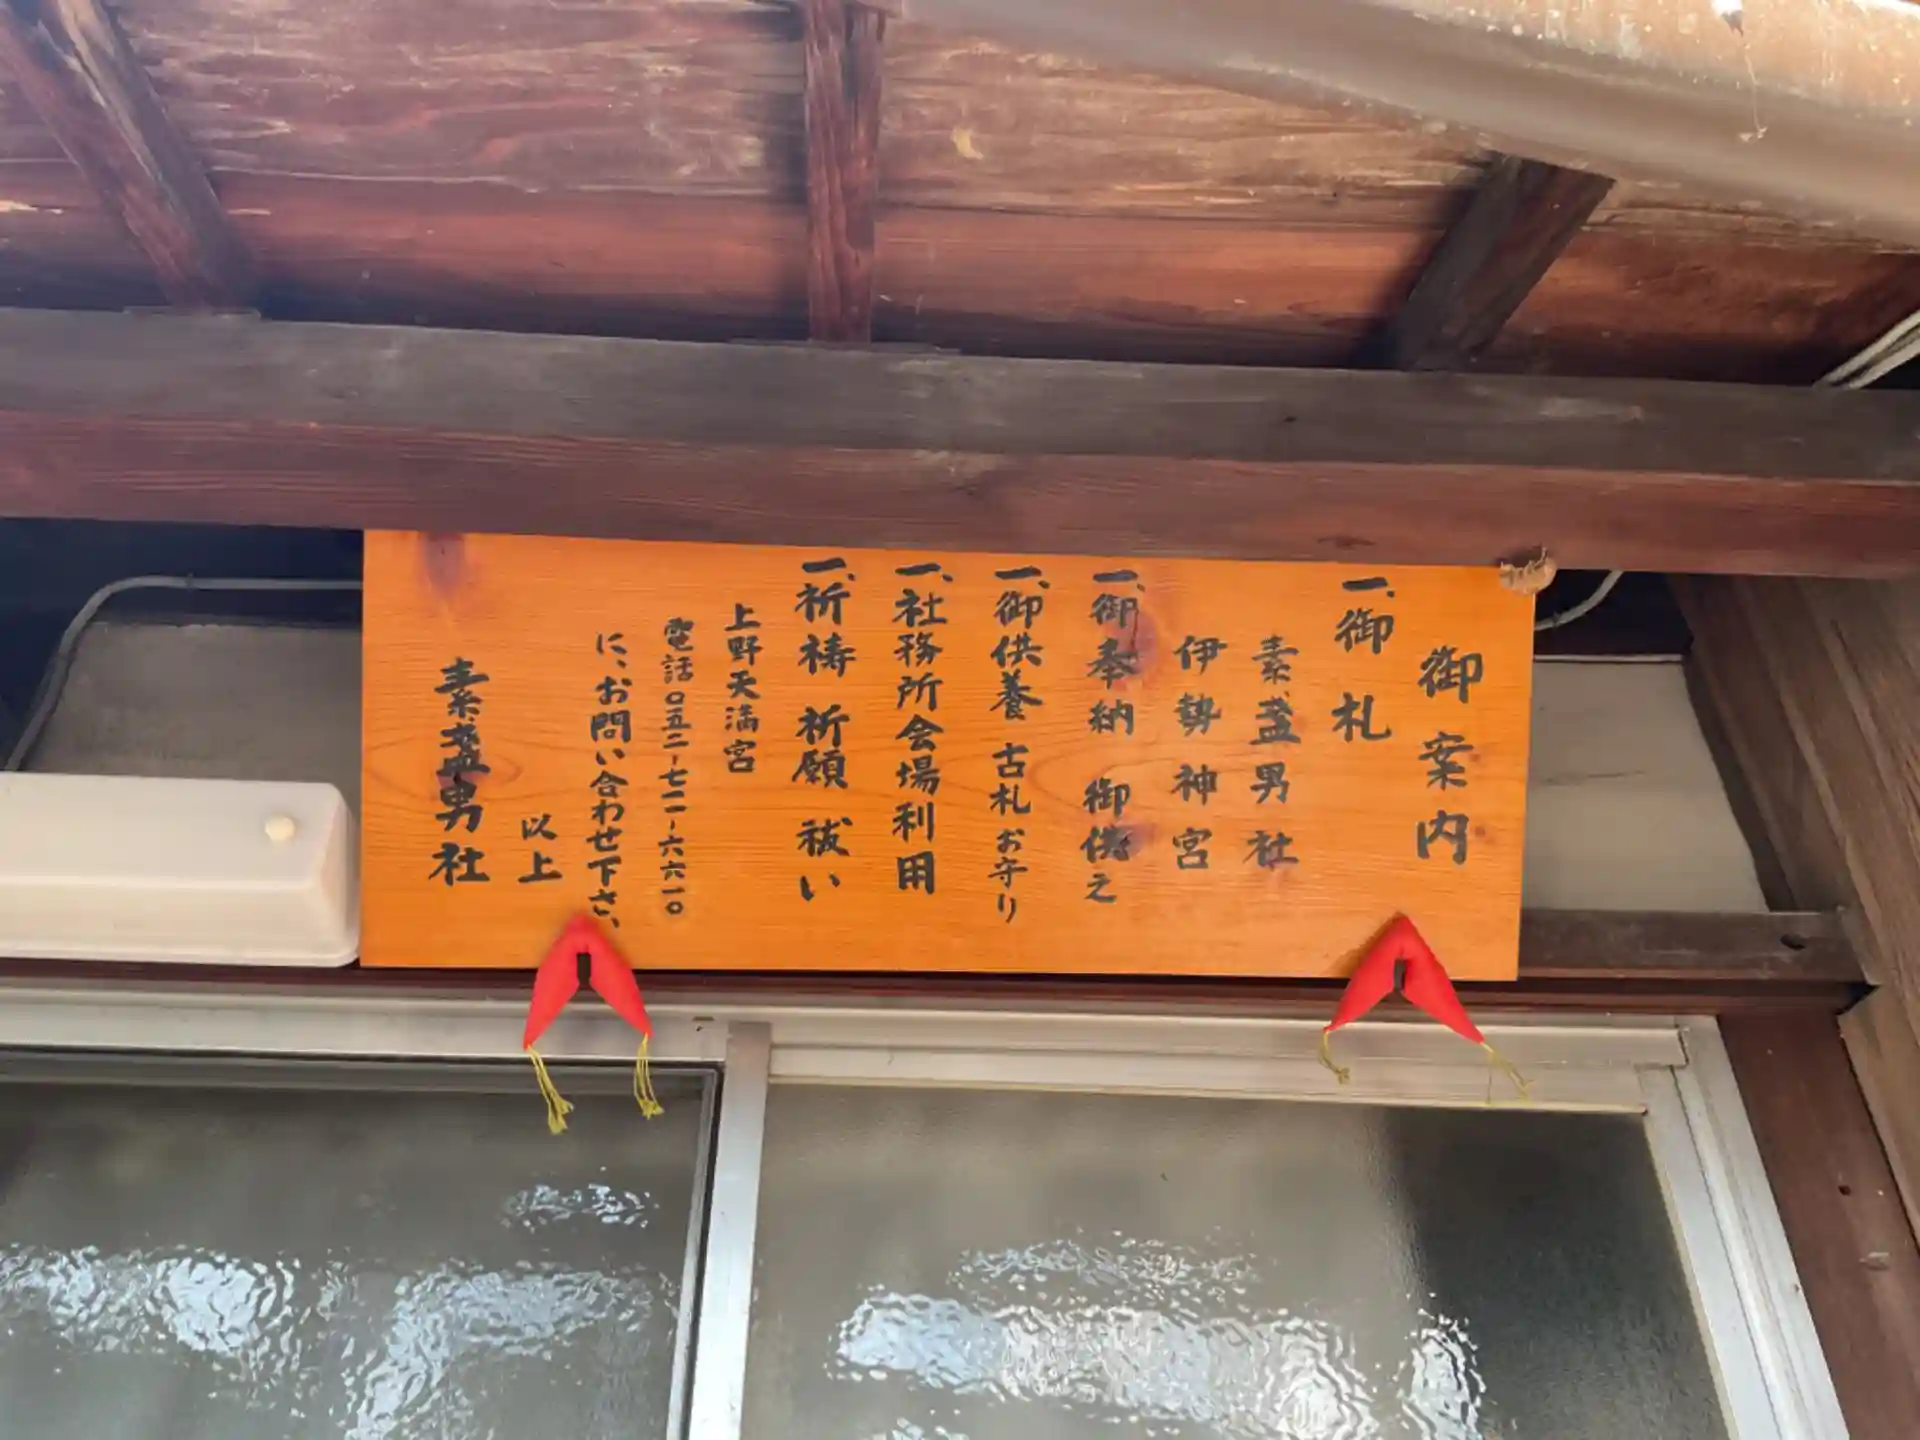 御案内
一、御札
素盞男社
伊勢神宮
一、御奉納 御供之
一、御供養 古札お守り
一、社務所会場利用
一、祈祷 祈願 祓い
上野天満宮
電話〇五二-七一一-六六一〇
に、お問い合わせ下さ
以上
素盞男社